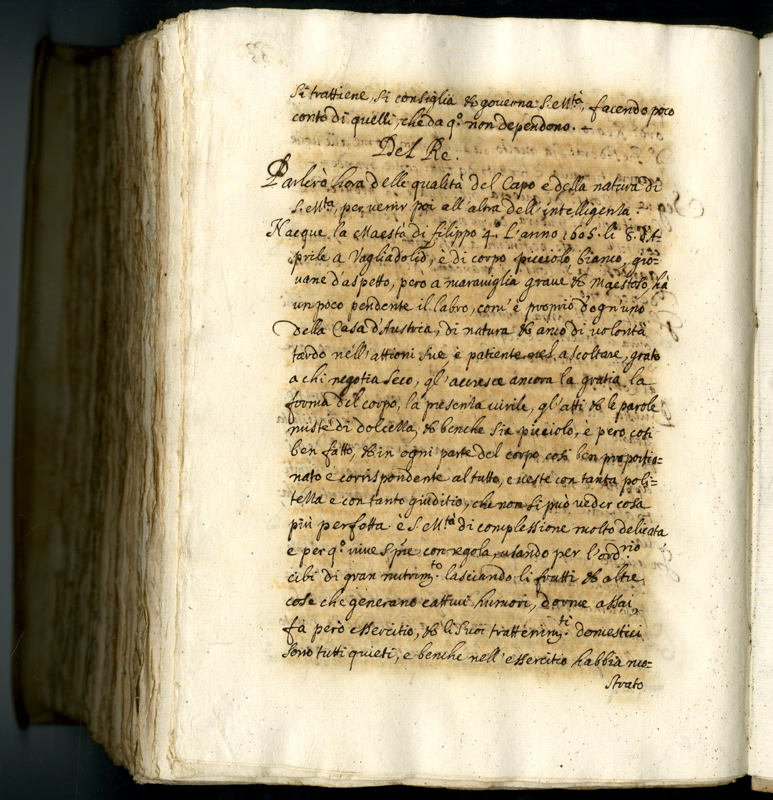 si trattiene, si consiglia & governa S. M.tà, facendo poco
conto di quelli, che da q.º non dependono.
Del Re.
Parlerò hora delle qualità del Capo e della natura di
S. M.tà, per venir poi all'altra dell'intelligenza.
Nacque la Maestà di filippo 4.º L'anno 1605. li 8. d'A-
prile a Vagliadolid, è di corpo picciolo bianco, gio=
vane d'aspetto, però a maraviglia grave & Maestoso, ha
un poco pendente il labro, com'è proprio d'ogn'uno
della Casa d'Austria, di natura & anco di volontà
tardo nell'attioni sue è patiente nel ascoltare, grato
a chi negotia seco, gl'accresce ancora la gratia la
forma del corpo, la presenza virile, gl'atti & le parole
miste di dolcezza, & benche sia picciolo, è però così
ben fatto, & in ogni parte del corpo così ben proportio=
nato e corrispondente al tutto, e veste con tanta poli=
tezza e con tanto giuditio, che non si può veder cosa
più perfetta è S. M.tà di complessione molto delicata
e per q.º vive spre con regola, usando per l'ord.rio
cibi di gran nutrim.to lasciando li frutti & altre
cose che generano cattivi humori, dorme assai,
fa però essercitio, & li suoi trattenim.ti domestici
sono tutti quieti, e benche nell'essercitio habbia mo=
strato